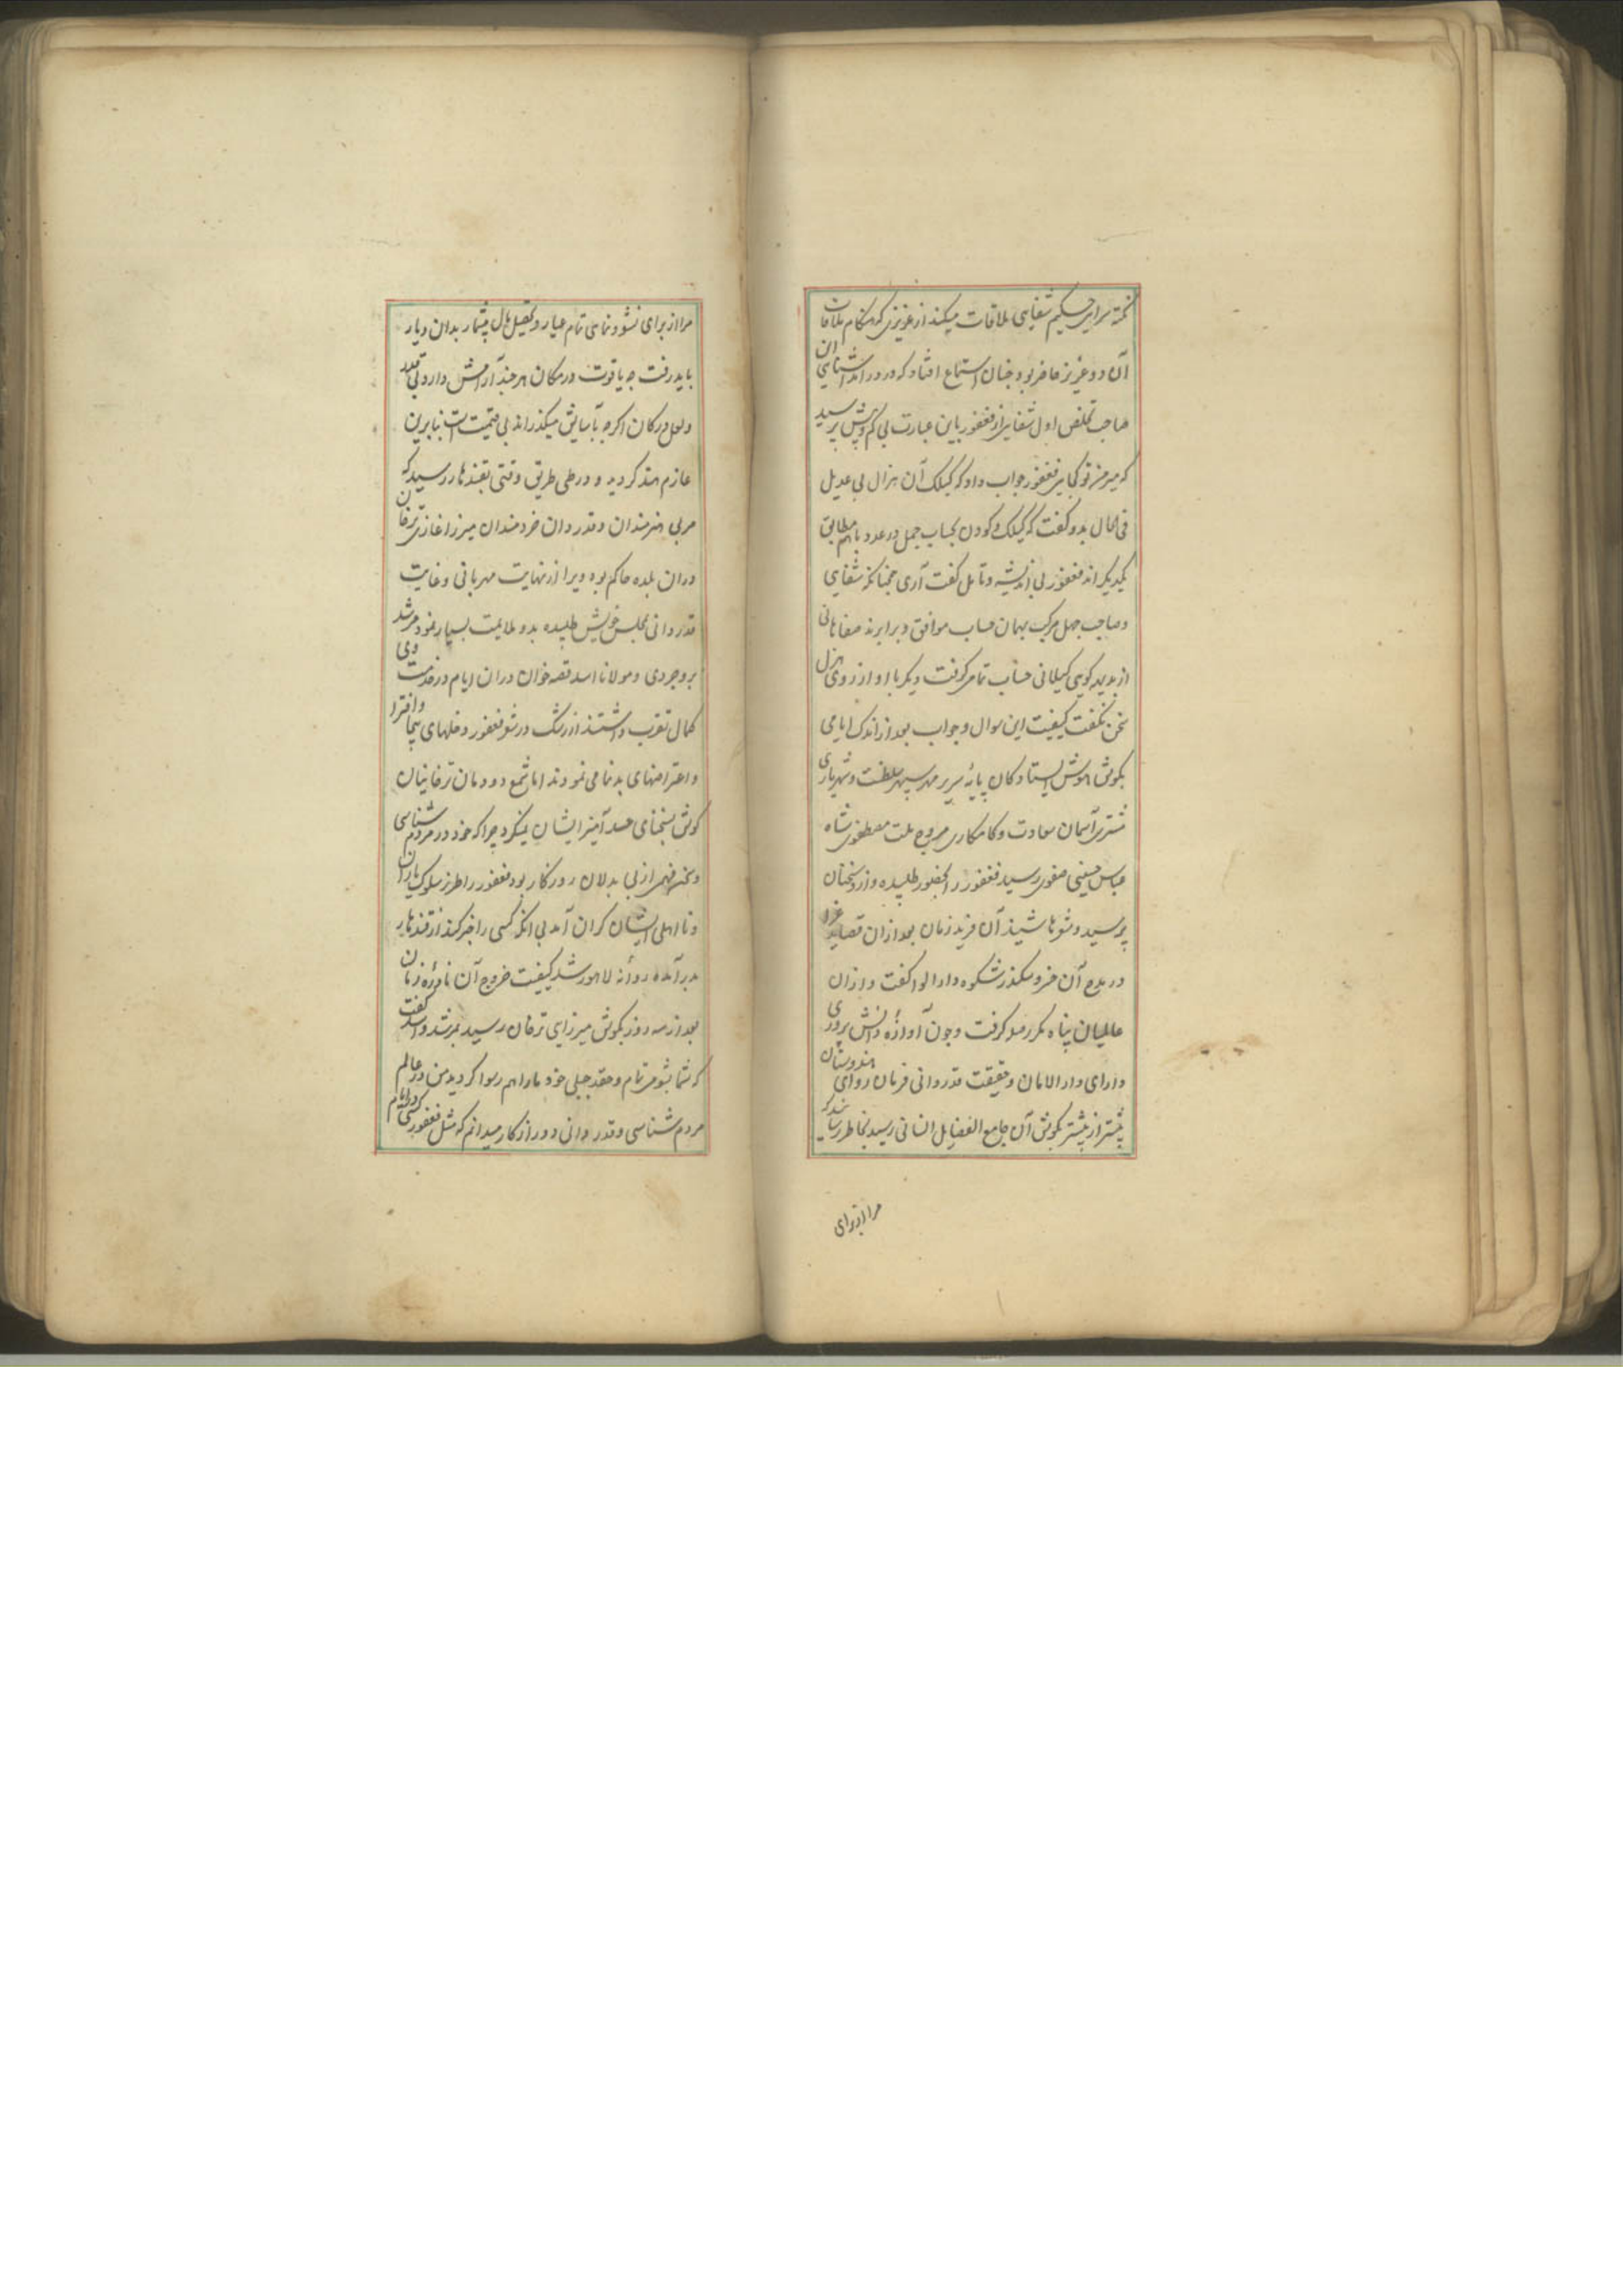 نکته سرایی حکیم شفایی ملاقات میکند از عزیزی که هنگام ملاقات
آن دو عزیز حاضر بود چنان استماع افتاد که در ورا اشنایی ان
صاحب تخلص اول شفایی از فغفور باین عبارت بی کم و بیش پرسید
که میر جز تو کجایی فغفور جواب داد که کیلک آن هزال بی عدیل
فی الحال بدو گفت که کیلک و کودن بحساب جمل در عدد باهم مطابق
یکدیگر اند فغفور بی اندیشه و تامل گفت آری همچنانکه شفایی
و صاحب جهل مرکب بهمان حساب موافق و برابرند صفاهانی
از بدیهه کویی کیلانی حساب تمامی کرفت دیگر با او از روی هزل
سخن نگفت کیفیت این سوال و جواب بعد از اندک ایامی
بکوش هوش ایستادکان پایهٔ سریر مهر سپهر سلطنت و شهریاری
مشتری آسمان سعادت و کامکاری مروج ملت مصطفوی شاه
عباس حسینی صفوی رسید فغفور را بحضور طلبیده و ازو سخنان
پرسید و شعرها شنید آن فرید زمان بعد ازان قصاید غرا
در مدح آن خسرو سکندر شکوه دارا لوا گفت و ازان
عالمیان پناه مکرر صله کرفت و چون آوازهٔ دانش پروری
دارای دار الامان و حقیقت قدردانی فرمان روای هندوستان
بیشتر از پیشتر بکوش آن جامع الفضایل انسانی رسید بخاطر رساند که
مرا از برای
مرا از برای نشو و نمای تمام عیار و تحصیل مال بیشمار بدان دیار
باید رفت چه یاقوت در مکان هر چند آرامش دارد بی قدر
و لعل در کان اکرچه بآسایش میکذراند بی قیمت است بنابرین
عازم هند کردید و در طی طریق وقتی بقندهار رسید که
مربی هنرمندان و قدردان خردمندان میرزا غازی ترخان
دران بلده حاکم بود ویرا از نهایت مهربانی و غایت
قدردانی بمجلس خویش طلبیده بدو ملایمت بسیار نمود مرشد
بروجردی و مولانا اسد قصه خوان دران ایام در خدمت وی
کمال تقرب داشتند از رشک در شعر فغفور دخلهای بیجا و افترا
و اعتراضهای بدنما می نمودند اما شمع دودمان ترخانیان
کوش بسخنای حسد آمیز ایشان نمیکرد چرا که خود در مردم شناسی
و سخن فهمی از بی بدلان روزکار بود فغفور را طرز سلوک یاران
و نااهلی ایشان کران آمد بی انکه کسی را خبر کند از قندهار
بدر آمده روانهٔ لاهور شد کیفیت خروج آن نادرهٔ زمان
بعد از سه روز بکوش میرزای ترخان رسید بمرشد و اسد گفت
که شما بشومی تمام و حقد جبلی خود ما را هم رسوا کردید من در عالم
مردم شناسی و قدردانی دور از کار میدانم که مثل فغفور کسی